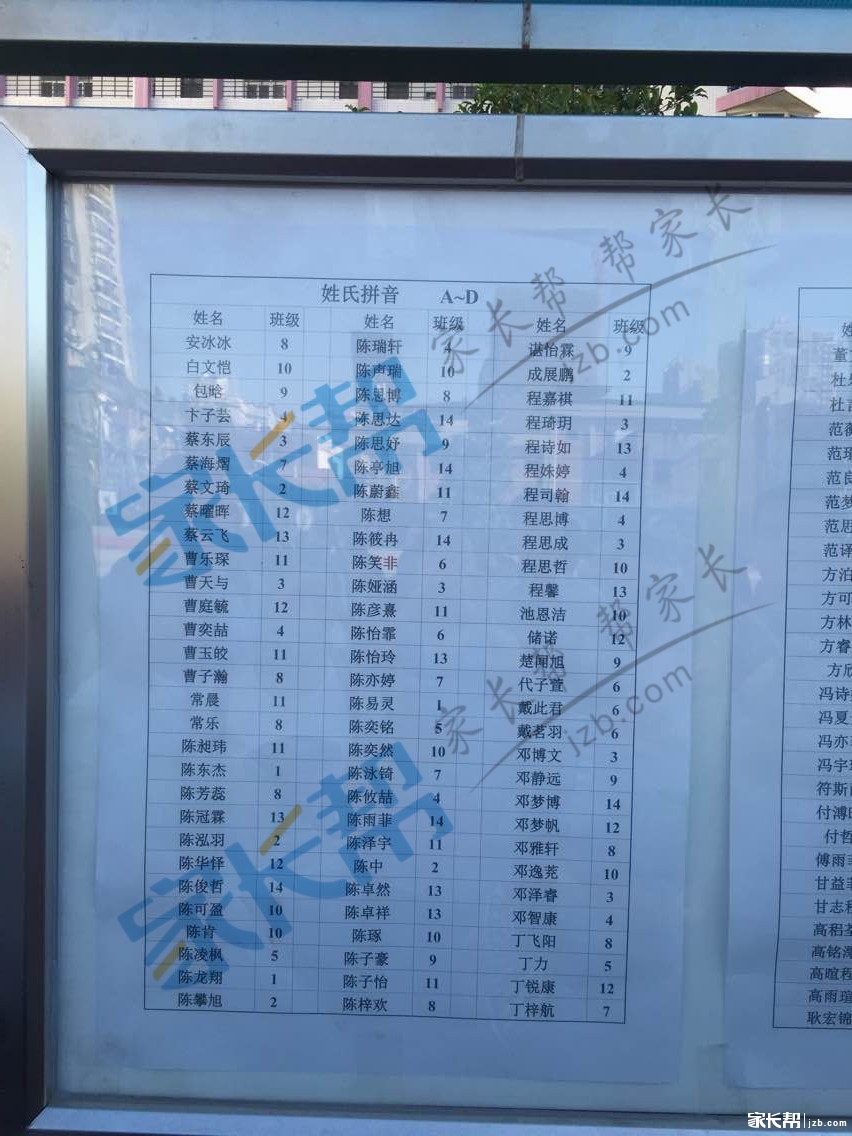 姓氏拼音 A~D
姓名 班级 姓名 班级 姓名 班级
安冰冰 8 陈瑞轩 4 谌怡霖 9
白文恺 10 陈声瑞 10 成展鹏 2
包晗 9 陈恩博 8 程嘉棋 11
卞子芸 4 陈思达 14 程琦玥 3
蔡东辰 3 陈思妤 9 程诗如 13
蔡海熠 7 陈亭旭 14 程姝婷 4
蔡文琦 2 陈蔚鑫 11 程司翰 14
蔡曜晖 12 陈想 7 程思博 4
蔡云飞 13 陈筱冉 14 程思成 3
曹乐琛 11 陈笑非 6 程思哲 10
曹天与 3 陈娅涵 3 程馨 13
曹庭毓 12 陈彦熹 11 池恩洁 10
曹奕喆 4 陈怡霏 6 储诺 12
曹玉皎 11 陈怡玲 13 楚闻旭 9
曹子瀚 8 陈亦婷 7 代子萱 6
常晨 11 陈易灵 1 戴此君 6
常乐 8 陈奕铭 5 戴茗羽 6
陈昶玮 11 陈奕然 10 邓博文 3
陈东杰 1 陈泳锜 7 邓静远 9
陈芳蕊 8 陈攸喆 4 邓梦博 14
陈冠霖 13 陈雨菲 14 邓梦帆 12
陈泓羽 2 陈泽宇 11 邓雅轩 8
陈华铎 12 陈中 2 邓逸茺 10
陈俊哲 14 陈卓然 13 邓泽睿 3
陈可盈 10 陈卓祥 13 邓智康 4
陈肯 10 陈琢 10 丁飞阳 8
陈凌枫 5 陈子豪 9 丁力 5
陈龙翔 1 陈子怡 11 丁锐康 12
陈攀旭 2 陈梓欢 8 丁梓航 7
董
杜
杜
范
范
范良
范梦
范思
范译
方泊
方可
方林
方睿
方欣
冯诗
冯夏
冯亦
冯宇
符斯
付溥
付哲
傅雨菲
甘益
甘志程
高稆
高铭泽
高暄程
高雨瑄
耿宏锦
家长帮
家长帮
家长帮 家长
jzb.com
家长帮 家长
jzb.com
家长帮 jzb.com